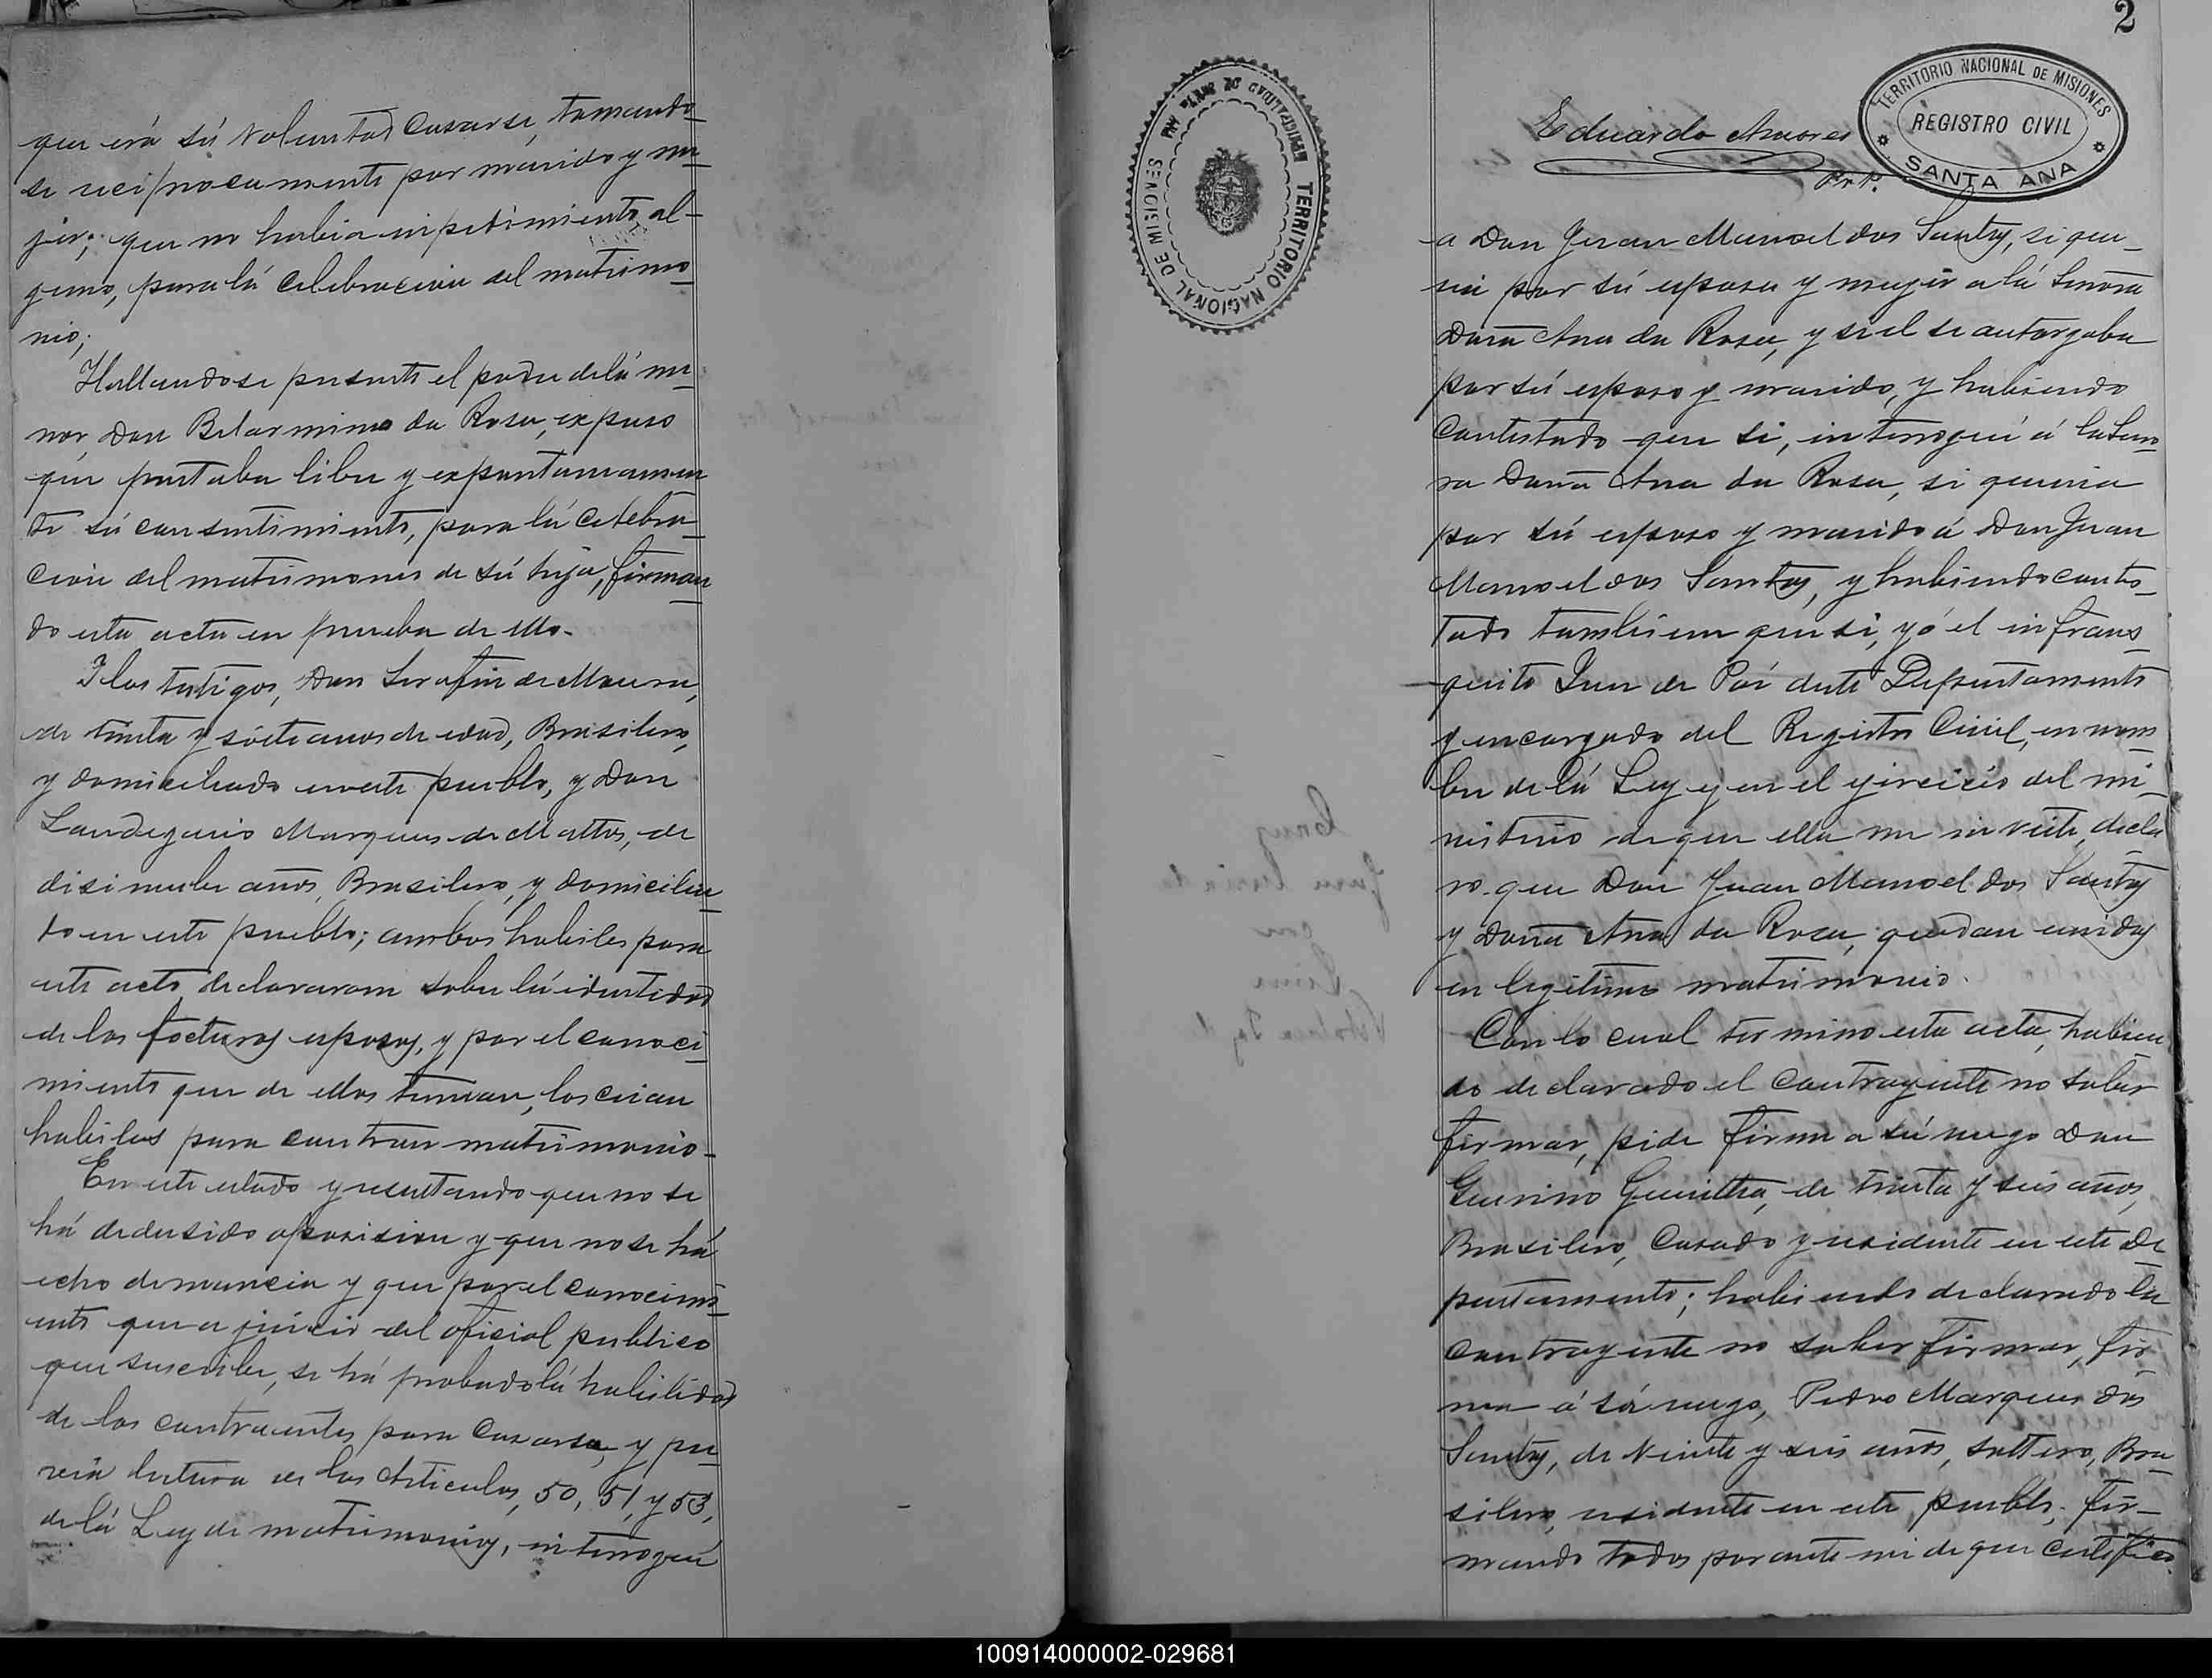 que erá sú voluntad casarse, tomando_
se reciprocamente por marido y mu_
jer; que no habia inpedimiento al-
guno, para lá celebracion del matrimo_
nio;
Hallandose presente el padre delá me_
nor, Don Belarmino da Rosa, expuso
que prestaba libre y expontaneamen
te sú consentimiento, para lá celebra_
cion del matrimonio de sú hija, firman_
do esta acta en prueba de ello.
I los testigos, Don Serafin de Moura,
de treinta y siete anos de edad, Brasilero,
y domiciliado en este pueblo, y Don
Marques de Mattos, de
disinuebe años, Brasilero, y domicilia_
do en este pueblo; ambos habiles para
este acto, declararom sobre lá identidad
de los focturos esposos, y por el conoci_
miento que de ellos tenian, los creian
habiles para contraer matrimonio-
En este estado y resultando que no se
há dedusido oposision y que no se há
echo denuncia y que por el conocimi_
ento que a juicio del oficial publico
que suscribe, se há probado lá habilidad
de los contraentes para casarse, y pre_
via lectura de los Articulos, 50, 51, y 53,
de lá Ley de matrimonios, interogué
2
TERRITORIO NACIONAL DE MISIONES
REGISTRO CIVIL
SANTA ANA
MUNICIPALIDAD DE SANTA ANA
TERRITORIO NACIONAL DE MISIONES
Eduardo
a Don Juan Manoel dos Santos, si que_
ria por sú esposa y mujer a lá Senora
Dona Ana da Rosa, y si el se autorgaba
por sú esposo y marido, y habiendo
contestado que si, interogué á la Seno_
ra Doña Ana da Rosa, si queria
por sú esposo y marido á Don Juan
Manoel dos Santos, y habiendo contes_
tado tambiem que si, yó el infrans_
quito Juez de Páz deste Departamento
y encargado del Registro Civil, en nom_
bre de lá Ley y en el ejercicio del mi_
nisterio de que ella me inviste, decla_
ro que Don Juan Manoel dos Santos
y Doña Ana da Rosa, quedan unidos
en legitimo matrimonio.
Con lo cual termino esta acta, habien
do declarado el contrayente no saber
firmar, pide firme a sú ruego Don
de trinta y seis años,
Brasilero, Casado y residente en este De_
partamento; habiendo declarado la
contrayente no saber firmar, fir_
ma á sú ruego, Pedro Marques dos
Santos, de Veinte y seis años, soltero, Bra_
silero, residente en este pueblo; fir_
mando todos por ante mi de que certifico.
100914000002-029681